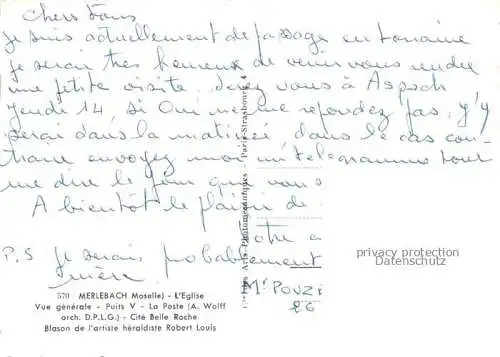 chers tous
je suis actuellement de passage en Lorraine
je serai très heureux de venir vous rendre
une petite visite. serez vous à Aspach
jeudi 14, si Oui ne me repondez pas, j'y
serai dans la matinée, dans le cas con-
traire envoyez moi un télégramme pour
me dire le jour que vous
A bientôt le plaisir de
votre a
P.S je serai probablement
Mr POUZ
26
570 MERLEBACH Moselle) - L'Eglise
Vue générale - Puits V - La Poste (A. Wolff
arch. D.P.L.G.) - Cité Belle Roche
Blason de l'artiste héraldiste Robert Louis
Arts Photomécaniques - Paris-Strasbourg
privacy protection
Datenschutz